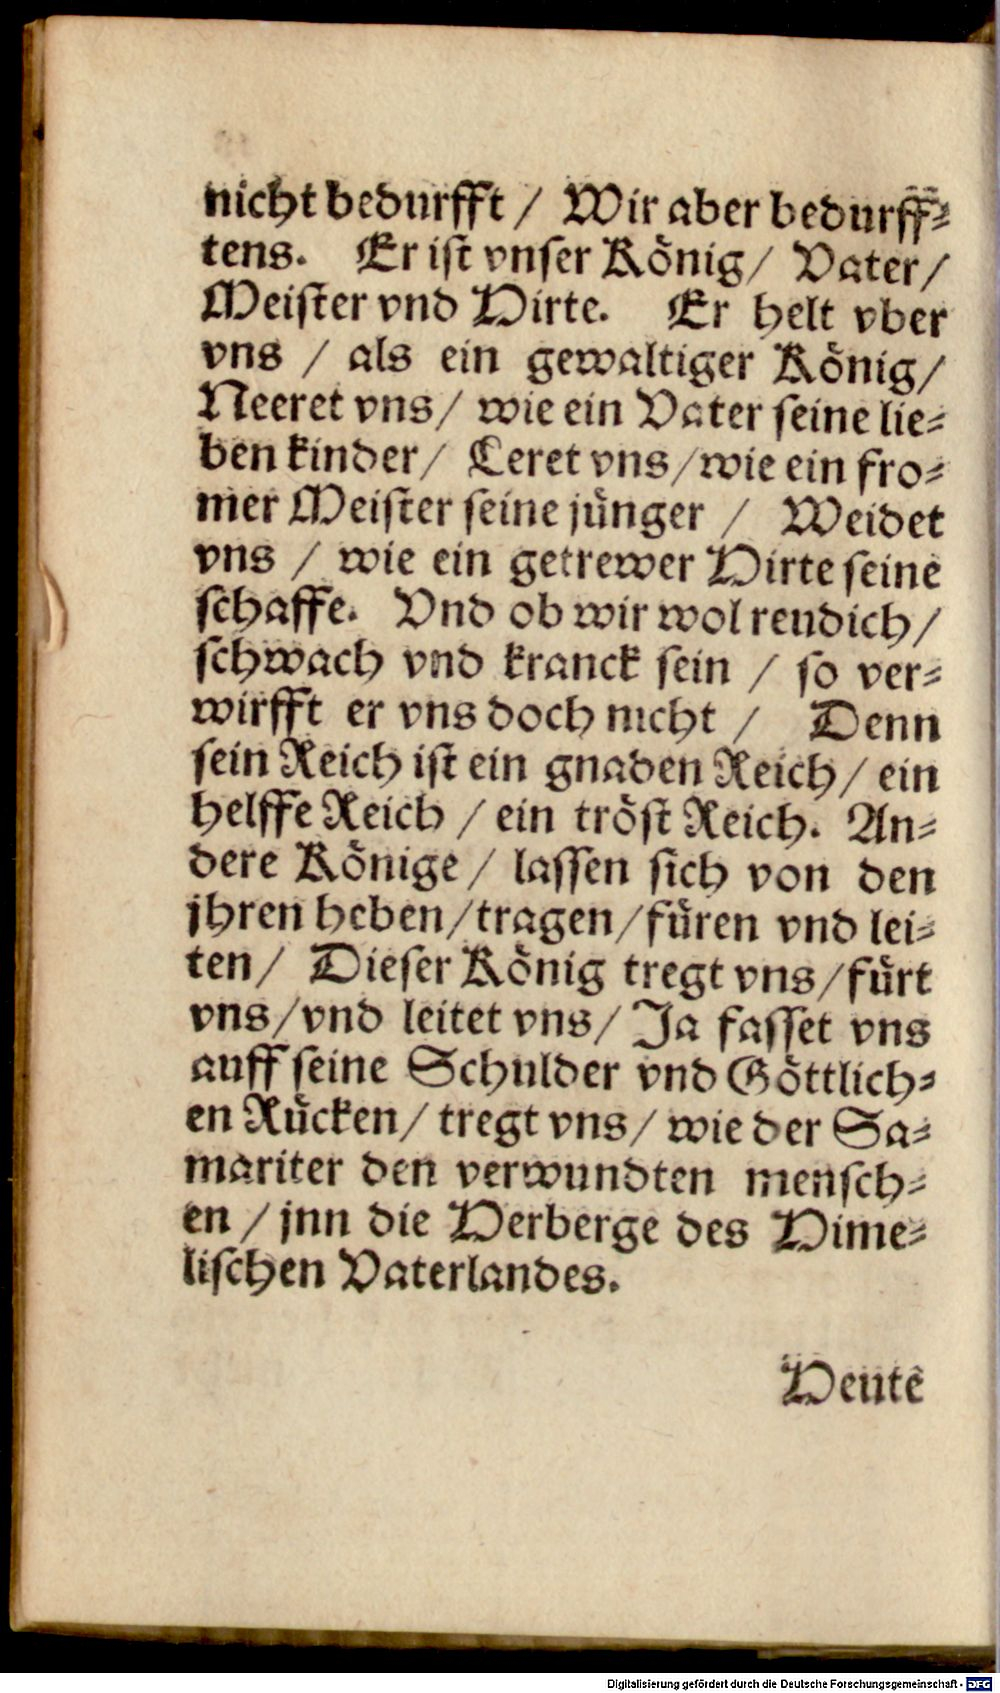 nicht bedurfft / Wir aber bedurff⸗
tens. Er ist vnser König / Vater /
Meister vnd Hirte. Er helt vber
vns / als ein gewaltiger König /
Neeret vns / wie ein Vater seine lie⸗
ben kinder / Leret vns / wie ein fro⸗
mer Meister seine jünger / Weidet
vns / wie ein getrewer Hirte seine
schaffe. Vnd ob wir wol reudich /
schwach vnd kranck sein / so ver⸗
wirfft er vns doch nicht / Denn
sein Reich ist ein gnaden Reich / ein
helffe Reich / ein tröst Reich. An⸗
dere Könige / lassen sich von den
jhren heben / tragen / füren vnd lei⸗
ten / Dieser König tregt vns / fürt
vns / vnd leitet vns / Ja fasset vns
auff seine Schulder vnd Göttlich⸗
en Rücken / tregt vns / wie der Sa⸗
mariter den verwundten mensch⸗
en / jnn die Herberge des Hime⸗
lischen Vaterlandes.
Heute
Digitalisierung gefördert durch die Deutsche Forschungsgemeinschaft - DFG